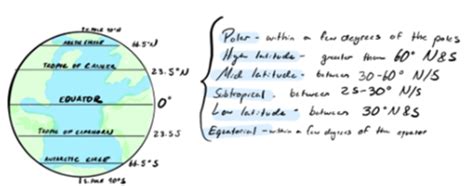 N. Pole 90°N
ARCTIC CIRCLE 66.5°N
TROPIC OF CANCER 23.5°N
EQUATOR 0°
TROPIC OF CAPRICORN 23.5S
ANTARCTIC CIRCLE 66.5°S
S. Pole 90°S
Polar - within a few degrees of the poles
High latitude - greater than 60° N&S
Mid latitude - between 30-60° N/S
Subtropical - between 25-30° N/S
Low latitude - between 30°N&S
Equatorial - within a few degrees of the equator